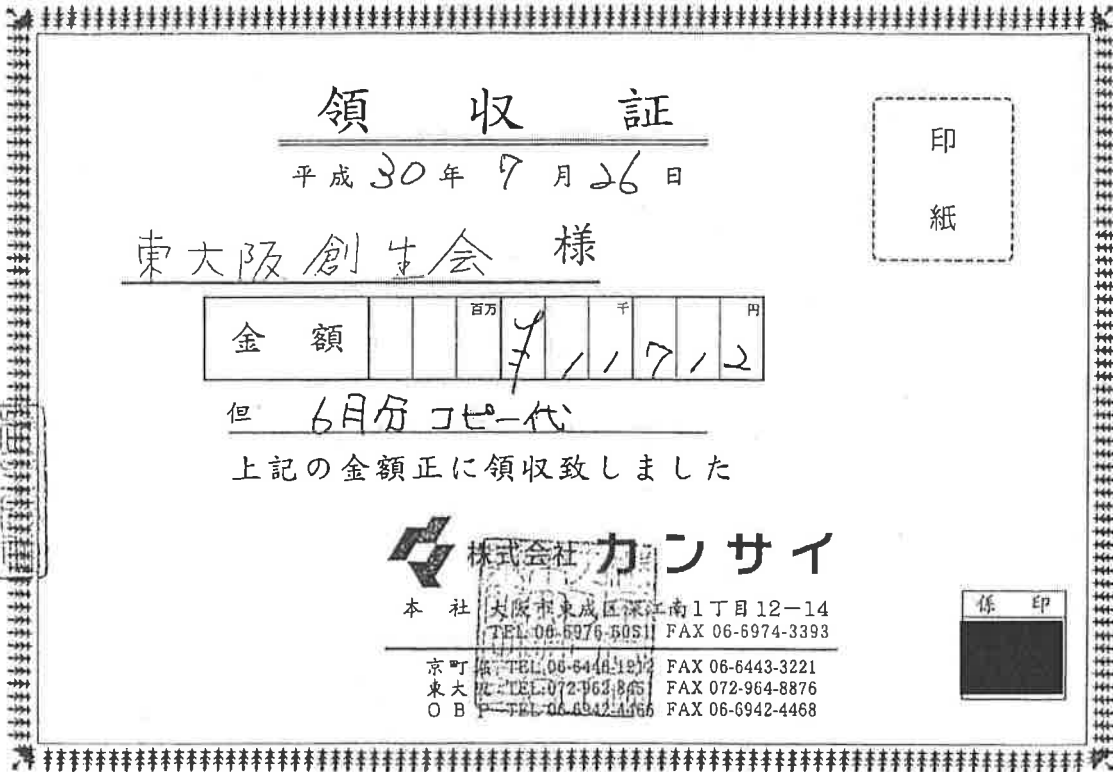 領収証
平成30年7月26日
印紙
東大阪創生会 様
金額 百万 千 円 ¥11712
但 6月分 コピー代
上記の金額正に領収致しました
株式会社 カンサイ
本社 大阪市東成区深江南1丁目12-14
TEL 06-6976-5051 FAX 06-6974-3393
京町 TEL 06-6446-1912 FAX 06-6443-3221
東大 TEL FAX 072-964-8876
OBP TEL 06-6942-4466 FAX 06-6942-4468
係印